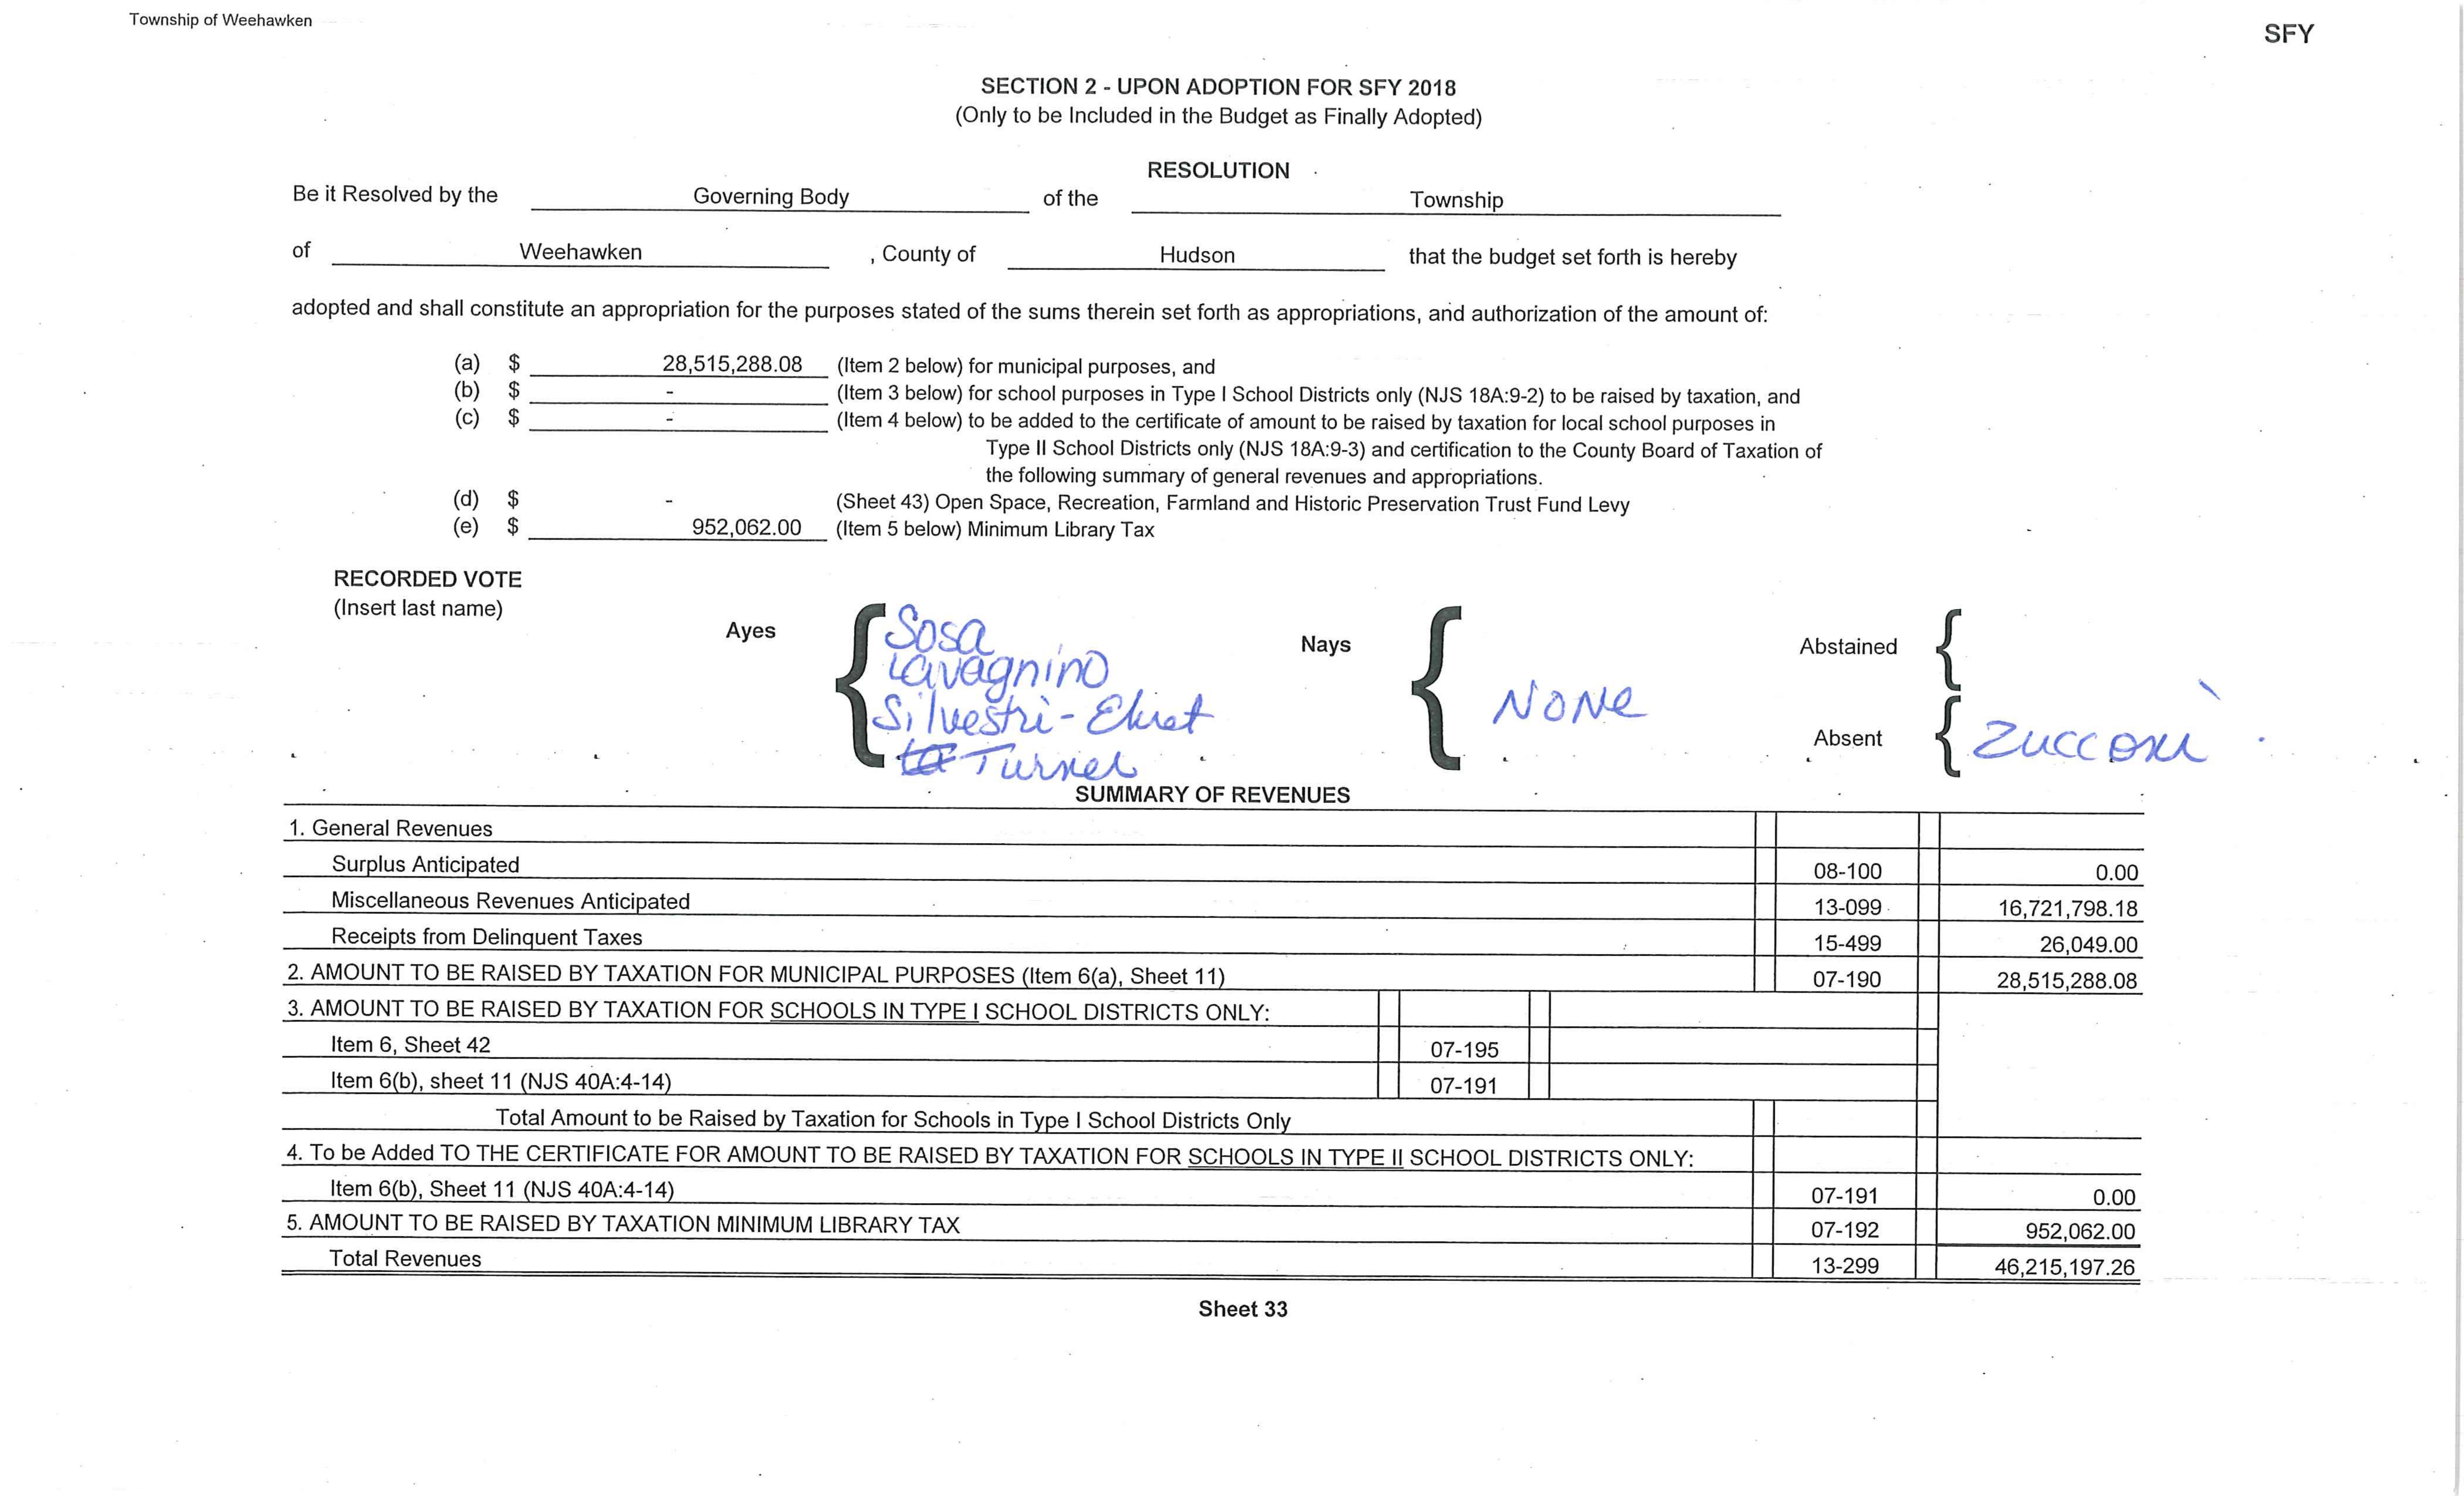 Township of Weehawken
SFY
SECTION 2 - UPON ADOPTION FOR SFY 2018
(Only to be Included in the Budget as Finally Adopted)
RESOLUTION
Be it Resolved by the Governing Body of the Township
of Weehawken , County of Hudson that the budget set forth is hereby
adopted and shall constitute an appropriation for the purposes stated of the sums therein set forth as appropriations, and authorization of the amount of:
(a) $ 28,515,288.08 (Item 2 below) for municipal purposes, and
(b) $ - (Item 3 below) for school purposes in Type I School Districts only (NJS 18A:9-2) to be raised by taxation, and
(c) $ - (Item 4 below) to be added to the certificate of amount to be raised by taxation for local school purposes in
Type II School Districts only (NJS 18A:9-3) and certification to the County Board of Taxation of
the following summary of general revenues and appropriations.
(d) $ - (Sheet 43) Open Space, Recreation, Farmland and Historic Preservation Trust Fund Levy
(e) $ 952,062.00 (Item 5 below) Minimum Library Tax
RECORDED VOTE
(Insert last name)
Ayes
Sosa
Lavagnino
Silvestri-Ehret
Turner
Nays
NONe
Abstained
Absent
Zucconi
SUMMARY OF REVENUES
1. General Revenues
Surplus Anticipated 08-100 0.00
Miscellaneous Revenues Anticipated 13-099 16,721,798.18
Receipts from Delinquent Taxes 15-499 26,049.00
2. AMOUNT TO BE RAISED BY TAXATION FOR MUNICIPAL PURPOSES (Item 6(a), Sheet 11) 07-190 28,515,288.08
3. AMOUNT TO BE RAISED BY TAXATION FOR SCHOOLS IN TYPE I SCHOOL DISTRICTS ONLY:
Item 6, Sheet 42 07-195
Item 6(b), sheet 11 (NJS 40A:4-14) 07-191
Total Amount to be Raised by Taxation for Schools in Type I School Districts Only
4. To be Added TO THE CERTIFICATE FOR AMOUNT TO BE RAISED BY TAXATION FOR SCHOOLS IN TYPE II SCHOOL DISTRICTS ONLY:
Item 6(b), Sheet 11 (NJS 40A:4-14) 07-191 0.00
5. AMOUNT TO BE RAISED BY TAXATION MINIMUM LIBRARY TAX 07-192 952,062.00
Total Revenues 13-299 46,215,197.26
Sheet 33